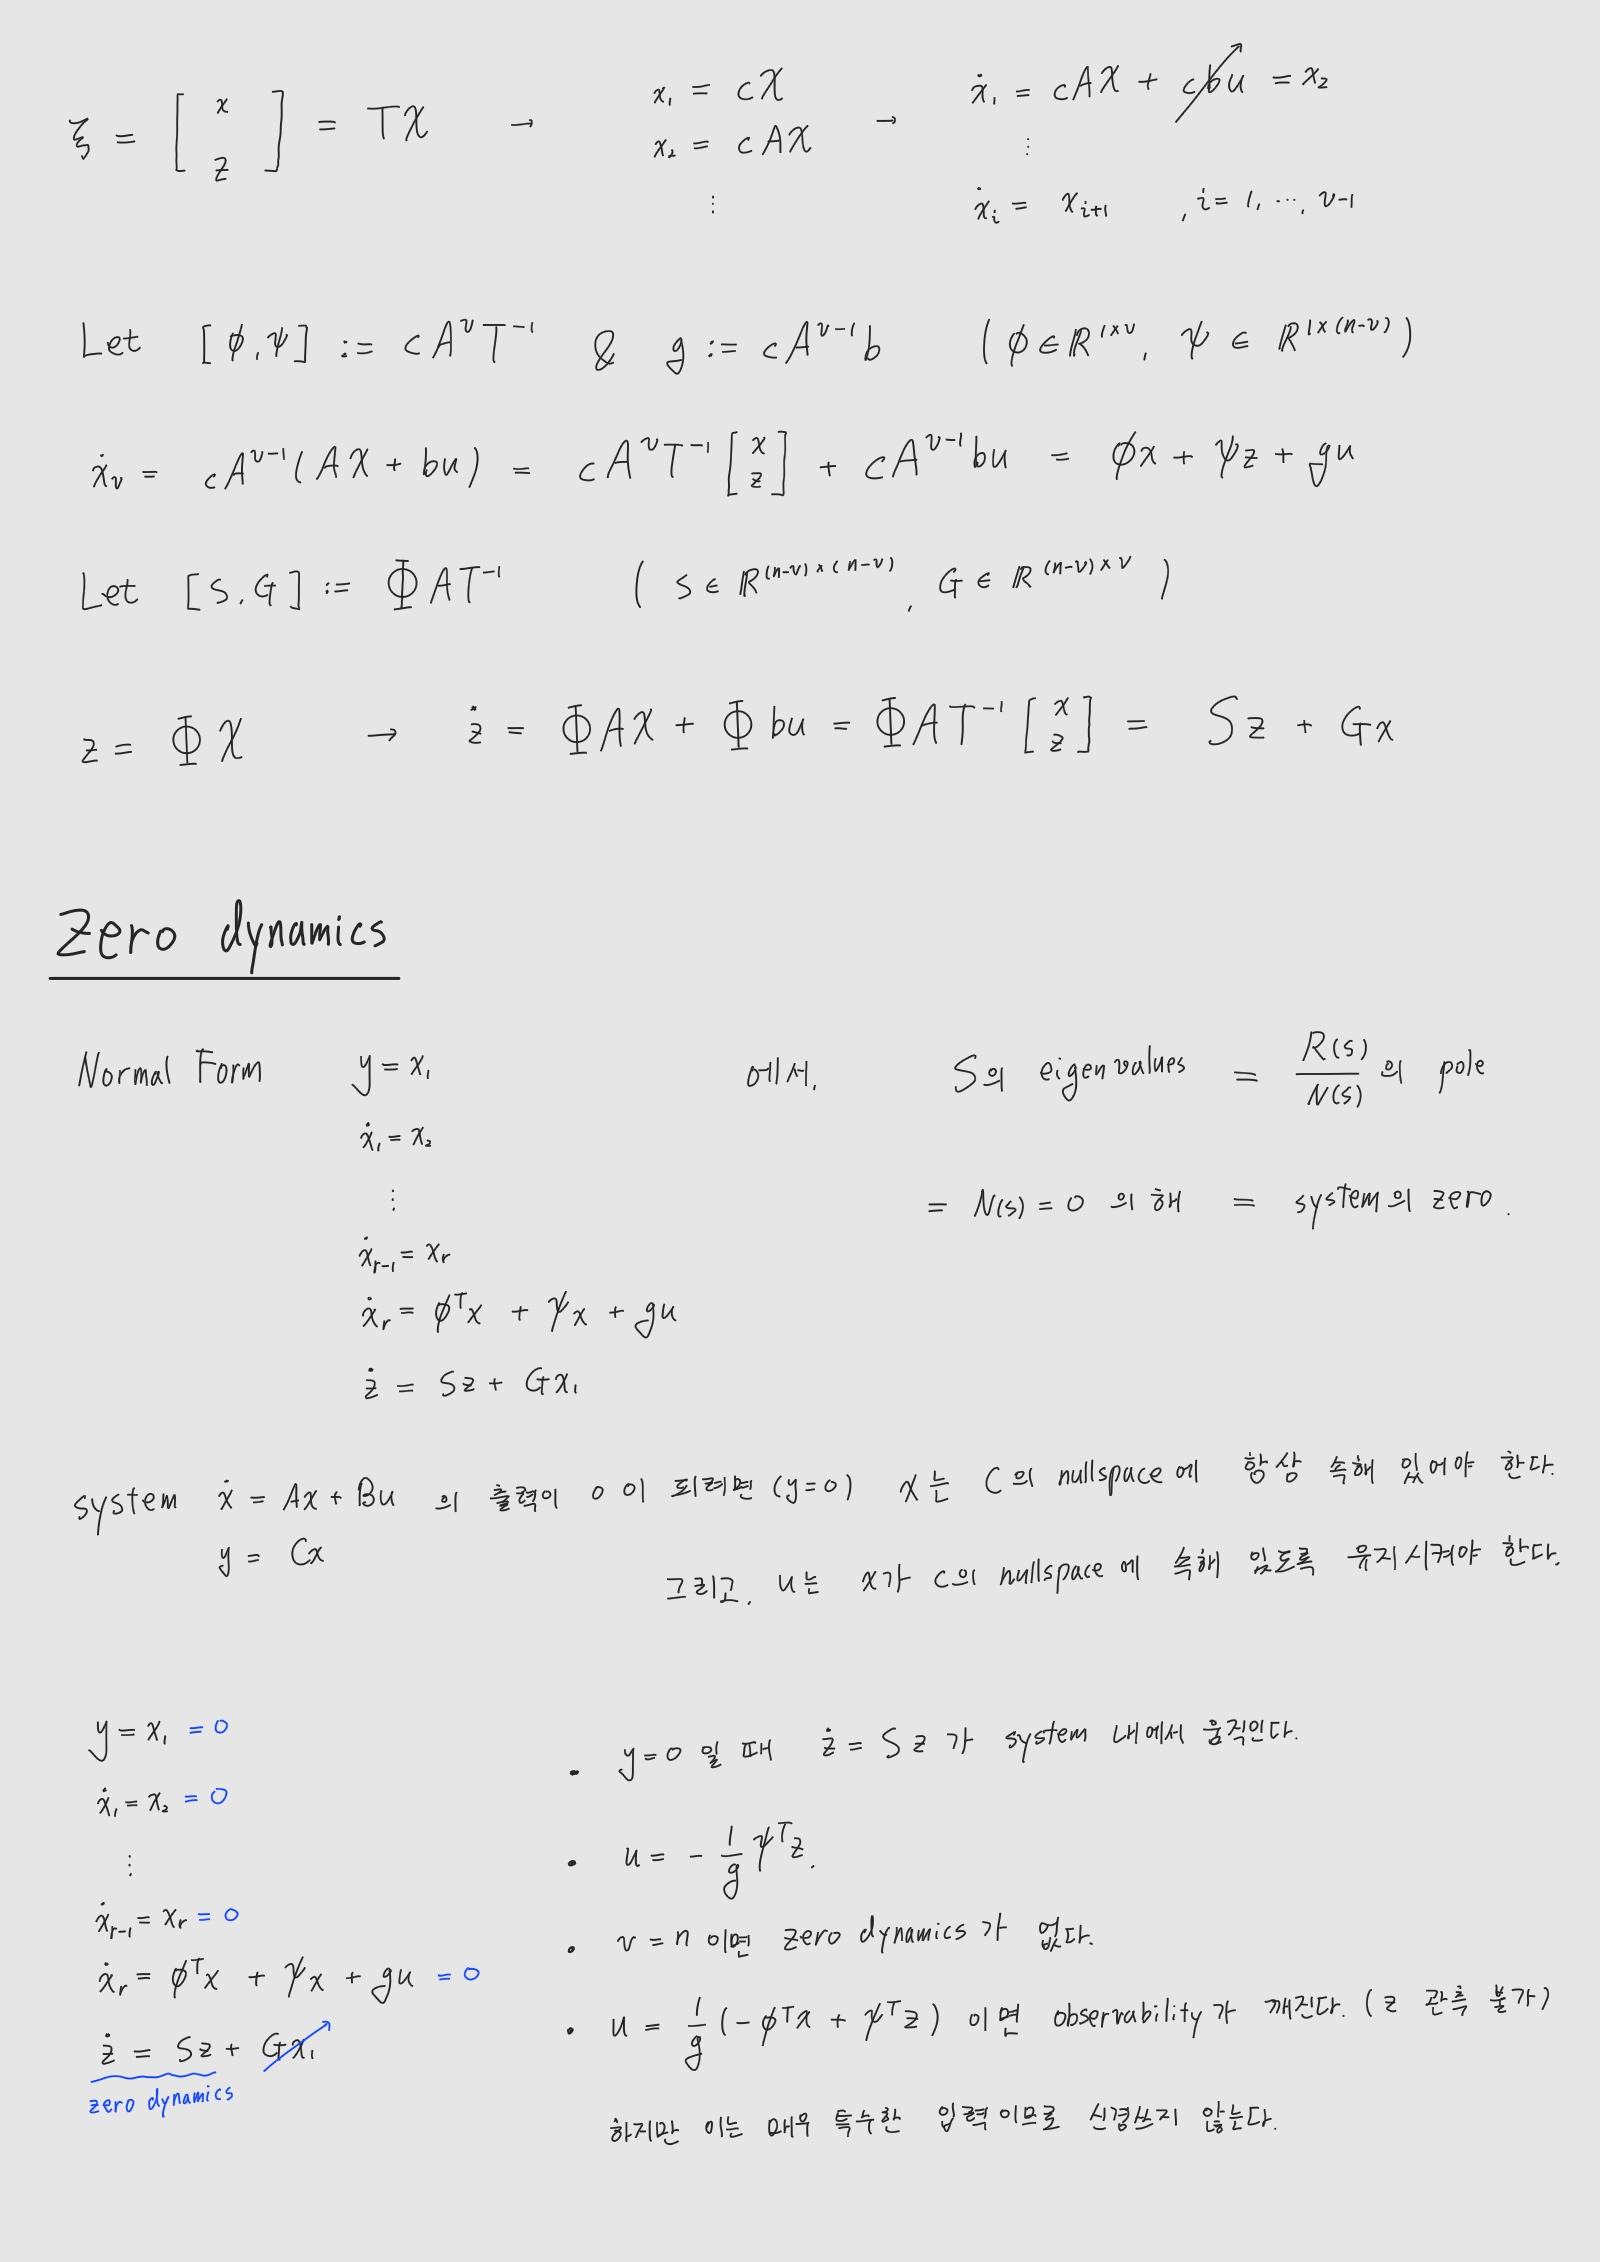 ξ = [ x z ] = TX → x₁ = cX x₂ = cAX ⋮ → ẋ₁ = cAX + cbu = x₂ ⋮ ẋᵢ = xᵢ₊₁ , i = 1, ⋯, ν-1
Let [ϕ, ψ] := cA^ν T⁻¹ & g := cA^(ν-1) b ( ϕ ∈ ℝ^(1×ν), ψ ∈ ℝ^(1×(n-ν)) )
ẋ_ν = cA^(ν-1)(AX + bu) = cA^ν T⁻¹ [ x z ] + cA^(ν-1) bu = ϕx + ψz + gu
Let [S, G] := ΦAT⁻¹ ( S ∈ ℝ^((n-ν)×(n-ν)), G ∈ ℝ^((n-ν)×ν) )
z = ΦX → ż = ΦAX + Φbu = ΦAT⁻¹ [ x z ] = Sz + Gx
Zero dynamics
Normal Form y = x₁ 에서, S의 eigenvalues = R(s)/N(s) 의 pole
ẋ₁ = x₂
⋮ = N(s) = 0 의 해 = system의 zero.
ẋ_(r-1) = x_r
ẋ_r = ϕᵀx + ψx + gu
ż = Sz + Gx₁
system ẋ = Ax + Bu 의 출력이 0 이 되려면 (y=0) x는 C의 nullspace에 항상 속해 있어야 한다.
y = Cx
그리고, u는 x가 C의 nullspace에 속해 있도록 유지시켜야 한다.
y = x₁ = 0
ẋ₁ = x₂ = 0
⋮
ẋ_(r-1) = x_r = 0
ẋ_r = ϕᵀx + ψx + gu = 0
ż = Sz + Gx₁
zero dynamics
• y=0 일 때 ż = Sz 가 system 내에서 움직인다.
• u = - 1/g ψᵀz.
• ν = n 이면 zero dynamics가 없다.
• u = 1/g (-ϕᵀx + ψᵀz) 이면 observability가 깨진다. (z 관측 불가)
하지만 이는 매우 특수한 입력이므로 신경쓰지 않는다.